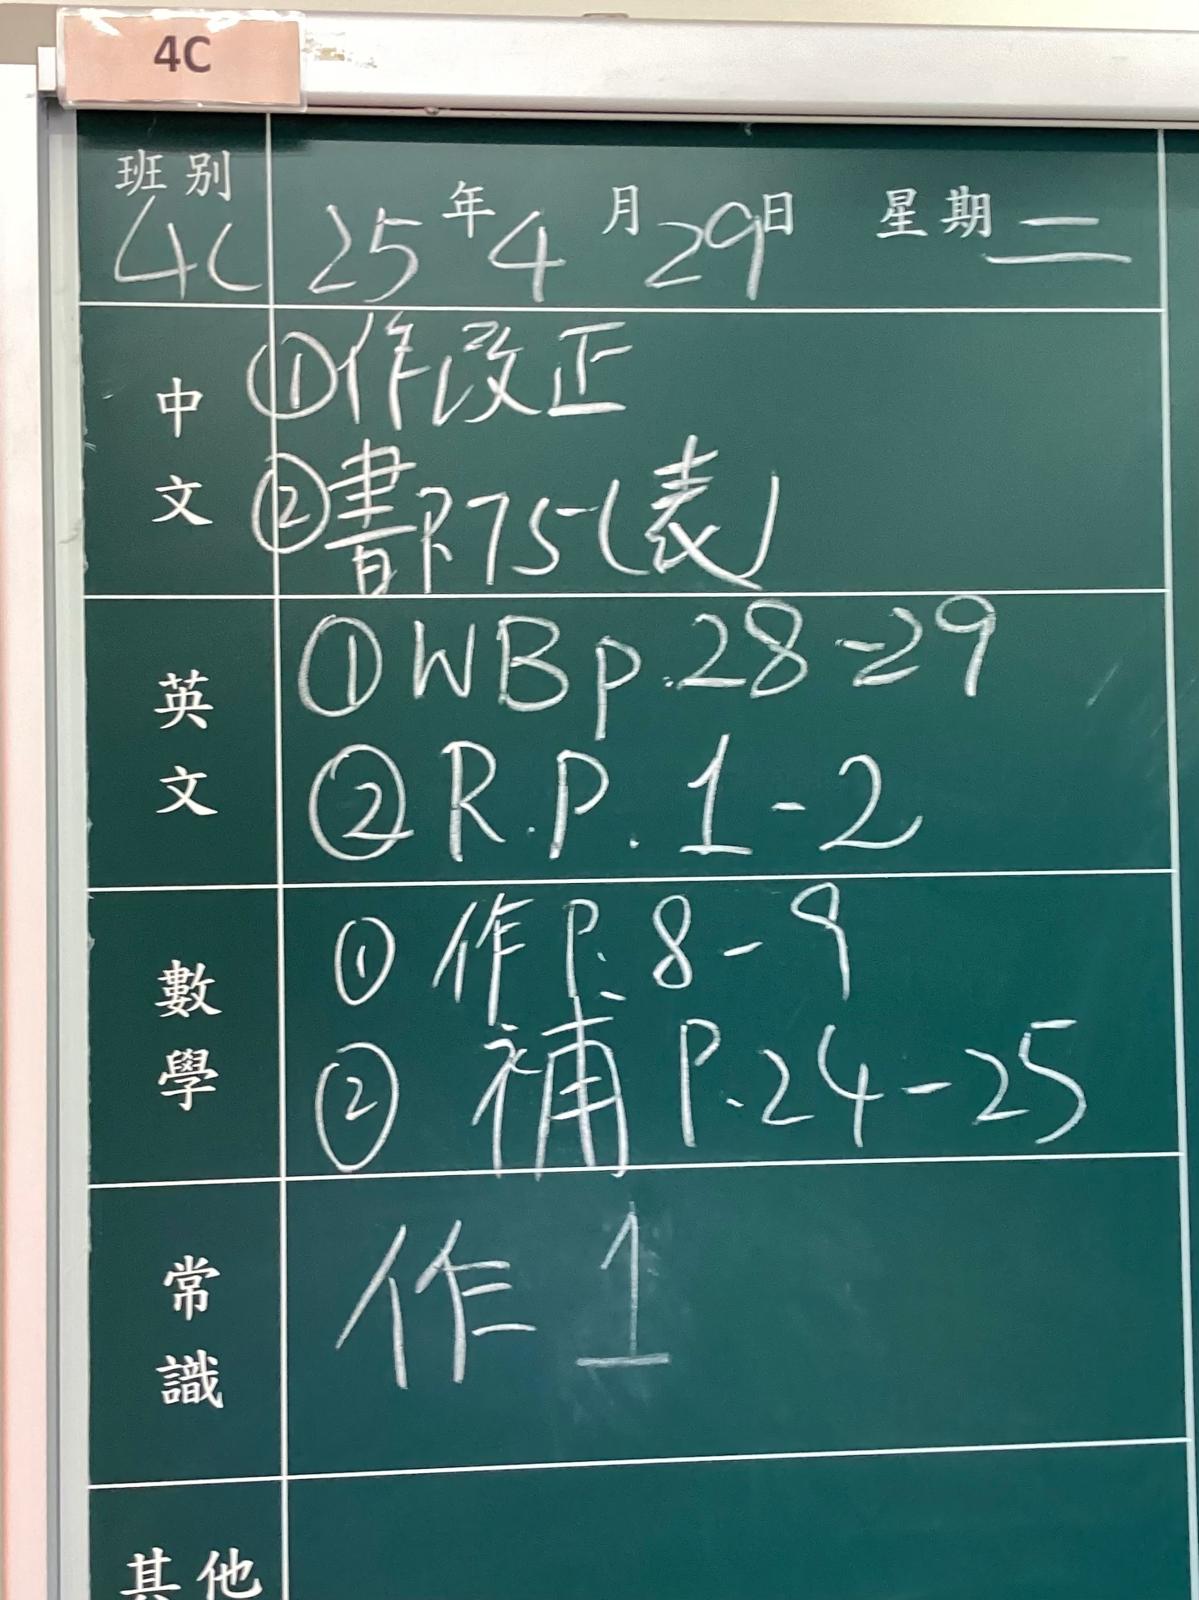 4C
班別 4C 25年4月29日 星期二
中文
①作改正
②書P.75(表)
英文
①WB p.28-29
②R.P. 1-2
數學
①作P.8-9
②補P.24-25
常識
作1
其他